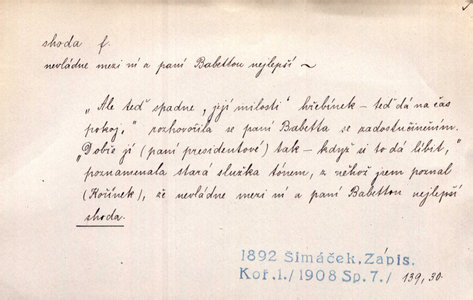 shoda f.
nevládne mezi ní a paní Babettou nejlepší ~
„Ale teď spadne ‚její milosti‘ hřebínek – teď dá na čas
pokoj,“ rozhovořila se paní Babetta se zadostiučiněním.
„Dobře jí (paní presidentové) tak – když si to dá líbit,“
poznamenala stará služka tónem, z něhož jsem poznal
(Kořínek), že nevládne mezi ní a paní Babettou nejlepší
shoda.
1892 Šimáček, Zápis.
Koř.1./1908 Sp.7./ 139,30.